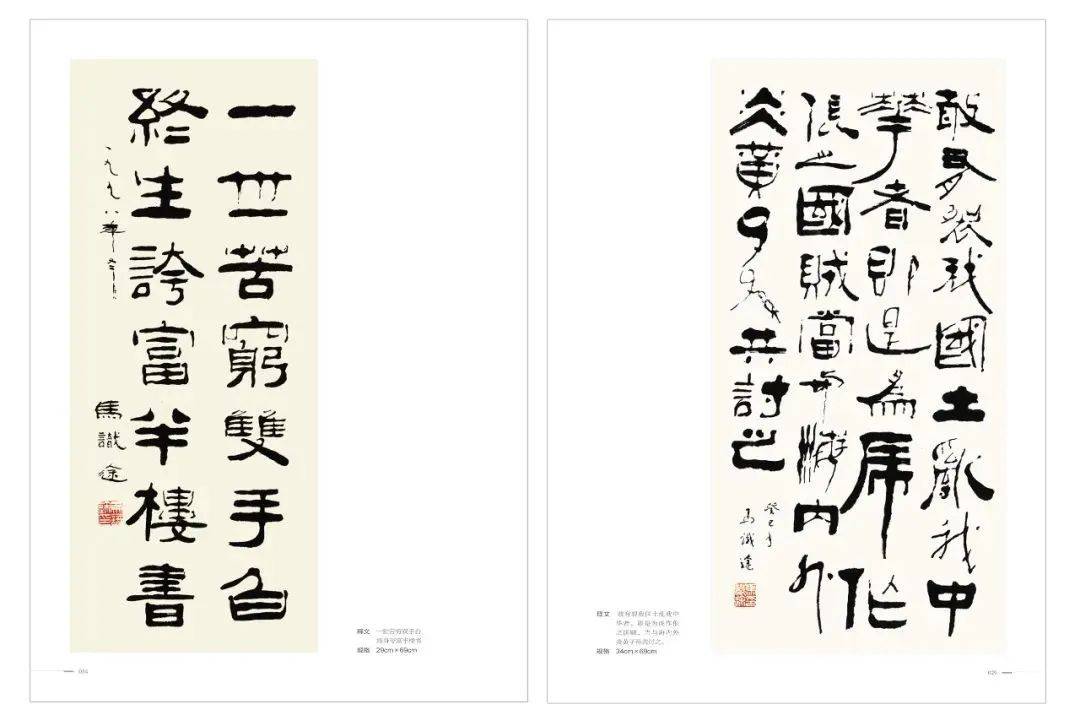 一世苦窮雙手白
終生誇富半樓書
一九九八年
馬識途
释文 一世苦穷双手白
终生夸富半楼书
规格 29cm×69cm
024
敢有裂我國土亂我中
華者即是為虎作
倀之國賊當与海内外
炎黃子孫共討之
癸巳年
馬識途
释文 敢有裂我国土乱我中
华者,即是为虎作伥
之国贼,当与海内外
炎黄子孙共讨之。
规格 34cm×69cm
025